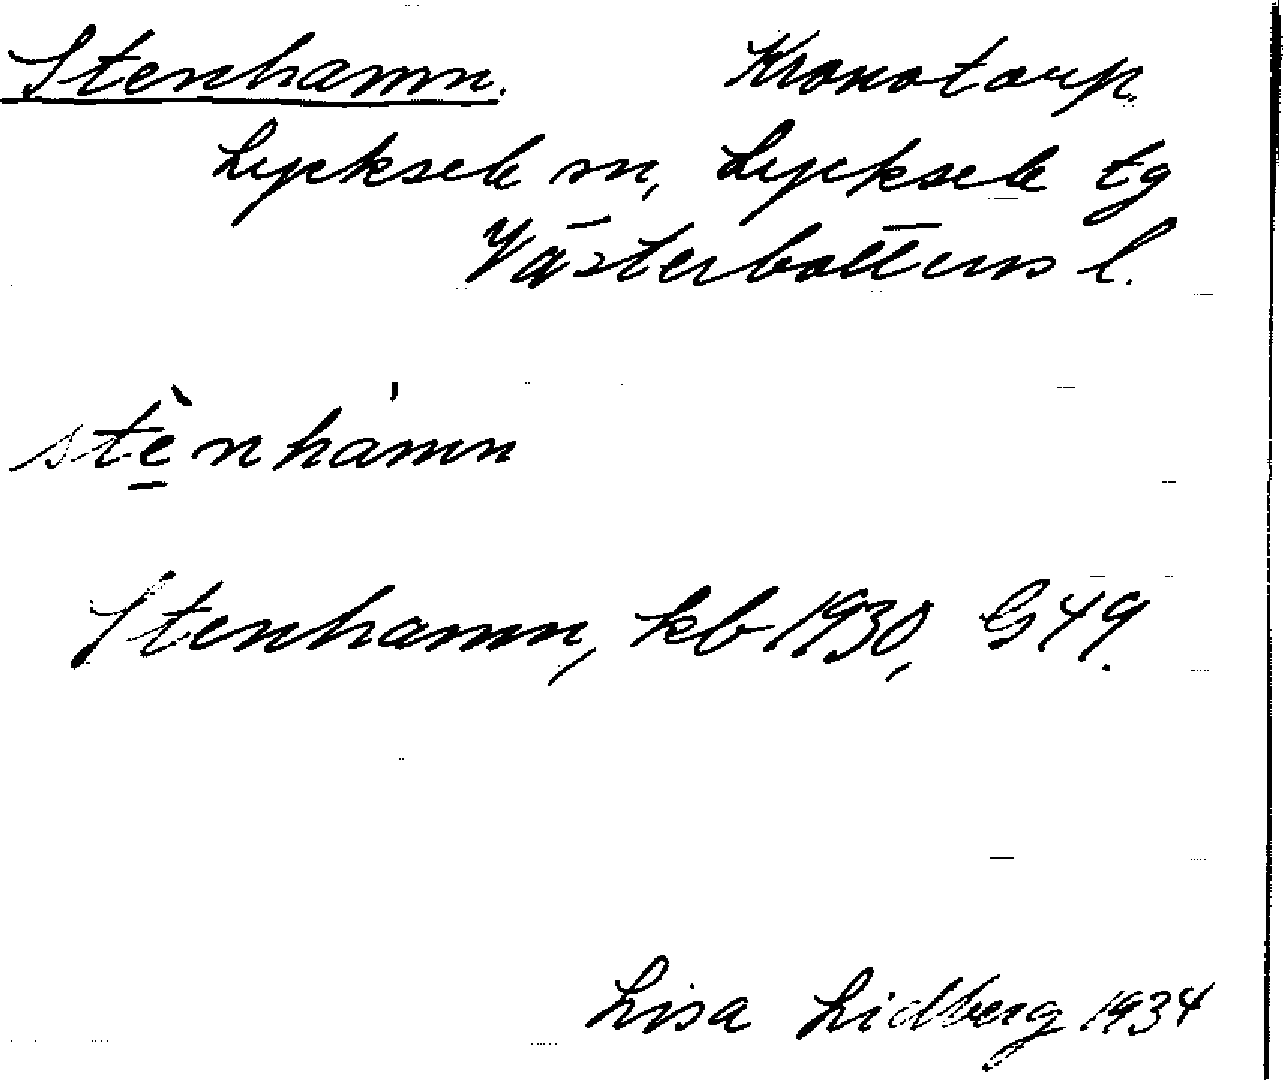 Stenhamn. Kronotorp.
Lycksele sn, Lycksele tg
Västerbottens l.
stè̱nhámn
Stenhamn, kb 1930, G49.
Lisa Lidberg 1934